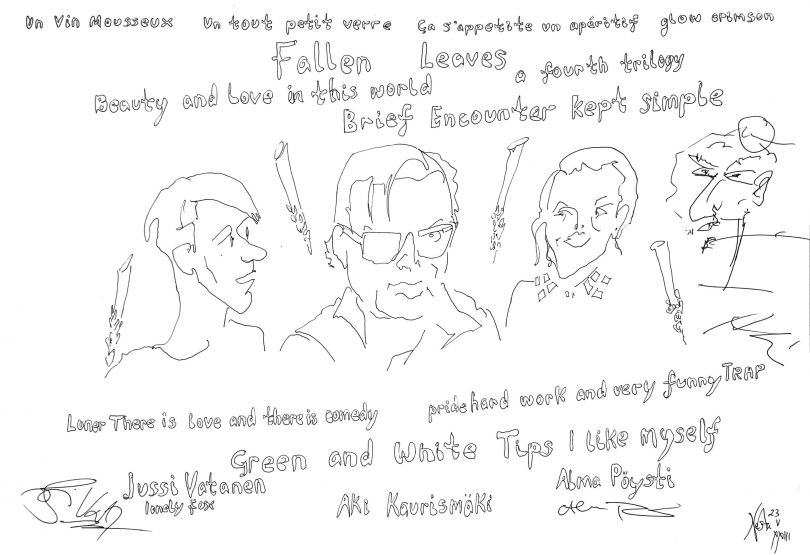 Un Vin Mousseux Un tout petit verre Ça s'appetite un apéritif glow crimson
Fallen Leaves a fourth trilogy
Beauty and love in this world
Brief Encounter kept simple
Loner There is love and there is comedy
pride hard work and very funny TRAP
Green and White Tips I like myself
Jussi Vatanen
lonely fox
Aki Kaurismäki
Alma Pöysti
23
V